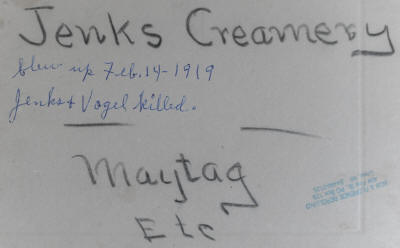 Jenks Creamery
blew up Feb. 14-1919
Jenks & Vogel killed.
Maytag
Etc